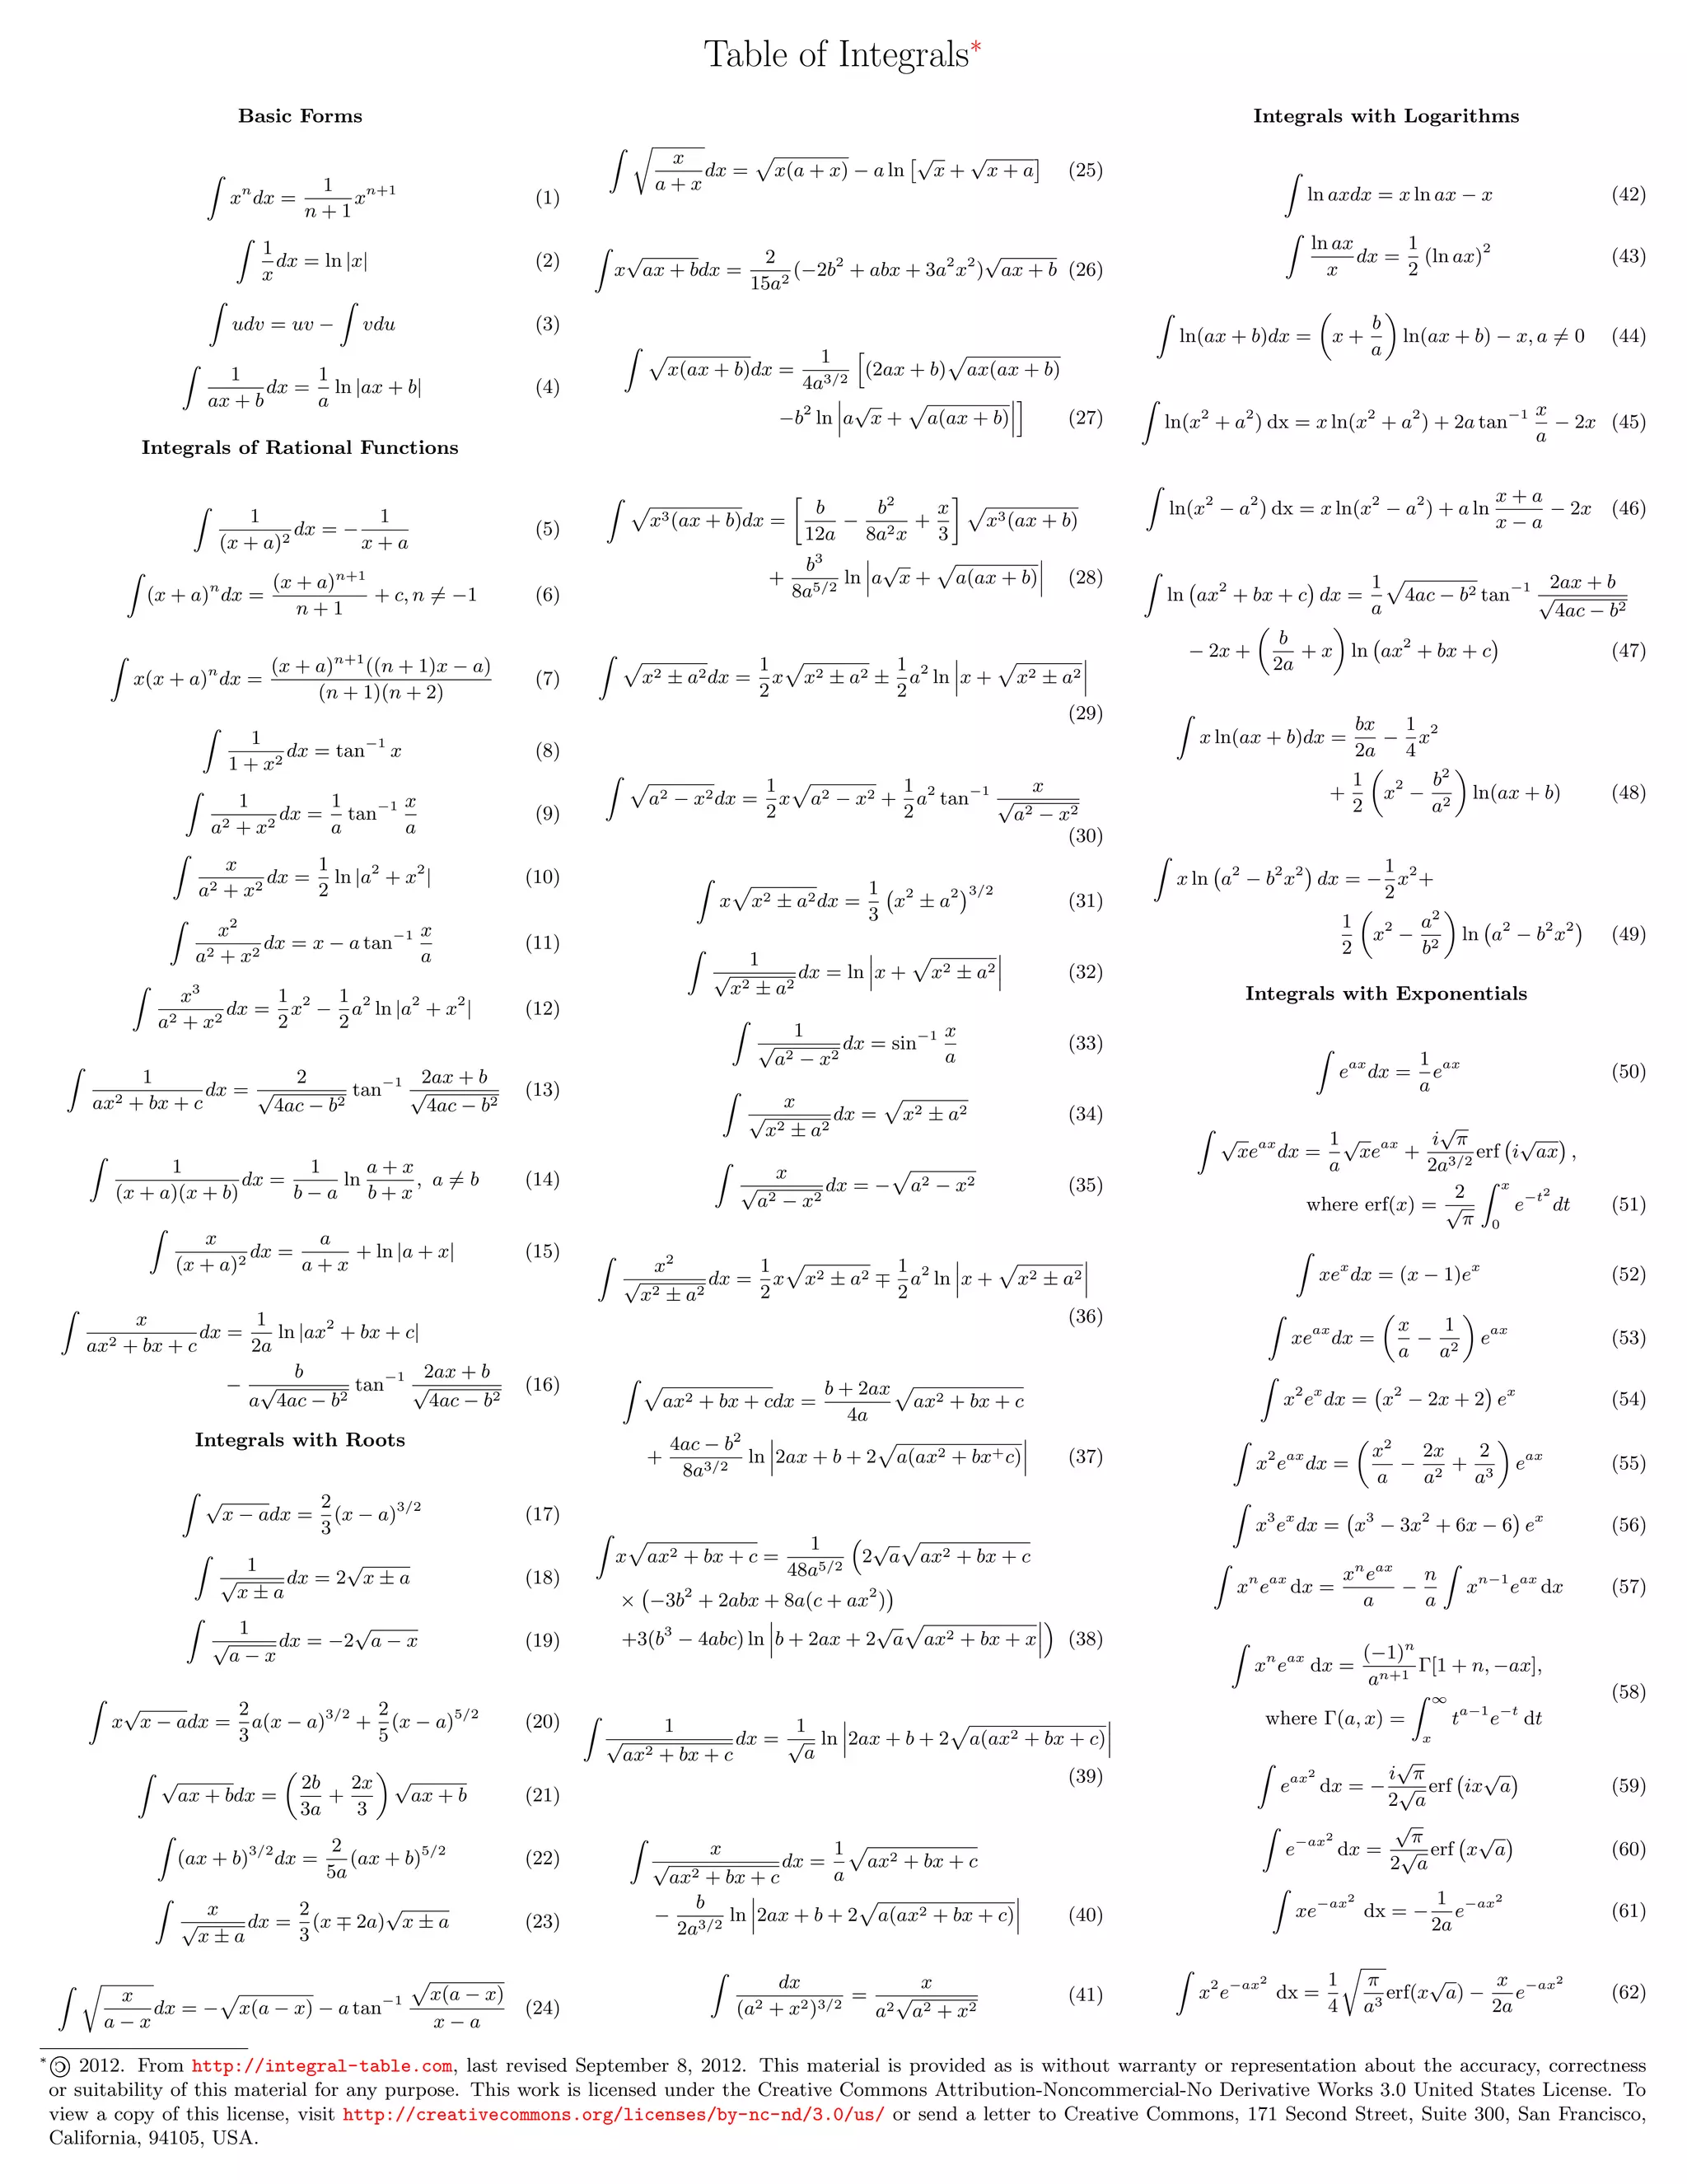 Table of Integrals*
Basic Forms
∫ xⁿdx = 1/(n + 1) xⁿ⁺¹ (1)
∫ 1/x dx = ln |x| (2)
∫ udv = uv − ∫ vdu (3)
∫ 1/(ax + b) dx = 1/a ln |ax + b| (4)
Integrals of Rational Functions
∫ 1/(x + a)² dx = − 1/(x + a) (5)
∫ (x + a)ⁿdx = (x + a)ⁿ⁺¹/(n + 1) + c, n ≠ −1 (6)
∫ x(x + a)ⁿdx = (x + a)ⁿ⁺¹((n + 1)x − a)/((n + 1)(n + 2)) (7)
∫ 1/(1 + x²) dx = tan⁻¹ x (8)
∫ 1/(a² + x²) dx = 1/a tan⁻¹ x/a (9)
∫ x/(a² + x²) dx = 1/2 ln |a² + x²| (10)
∫ x²/(a² + x²) dx = x − a tan⁻¹ x/a (11)
∫ x³/(a² + x²) dx = 1/2 x² − 1/2 a² ln |a² + x²| (12)
∫ 1/(ax² + bx + c) dx = 2/√(4ac − b²) tan⁻¹ (2ax + b)/√(4ac − b²) (13)
∫ 1/((x + a)(x + b)) dx = 1/(b − a) ln (a + x)/(b + x), a ≠ b (14)
∫ x/(x + a)² dx = a/(a + x) + ln |a + x| (15)
∫ x/(ax² + bx + c) dx = 1/(2a) ln |ax² + bx + c|
− b/(a√(4ac − b²)) tan⁻¹ (2ax + b)/√(4ac − b²) (16)
Integrals with Roots
∫ √(x − a)dx = 2/3 (x − a)^(3/2) (17)
∫ 1/√(x ± a) dx = 2√(x ± a) (18)
∫ 1/√(a − x) dx = −2√(a − x) (19)
∫ x√(x − a)dx = 2/3 a(x − a)^(3/2) + 2/5 (x − a)^(5/2) (20)
∫ √(ax + b)dx = (2b/3a + 2x/3) √(ax + b) (21)
∫ (ax + b)^(3/2)dx = 2/(5a) (ax + b)^(5/2) (22)
∫ x/√(x ± a) dx = 2/3 (x ∓ 2a)√(x ± a) (23)
∫ √(x/(a − x)) dx = −√(x(a − x)) − a tan⁻¹ √(x(a − x))/(x − a) (24)
∫ √(x/(a + x)) dx = √(x(a + x)) − a ln [√x + √(x + a)] (25)
∫ x√(ax + b)dx = 2/(15a²) (−2b² + abx + 3a²x²)√(ax + b) (26)
∫ √(x(ax + b))dx = 1/(4a^(3/2)) [(2ax + b)√(ax(ax + b))
−b² ln |a√x + √(a(ax + b))|] (27)
∫ √(x³(ax + b))dx = [b/(12a) − b²/(8a²x) + x/3] √(x³(ax + b))
+ b³/(8a^(5/2)) ln |a√x + √(a(ax + b))| (28)
∫ √(x² ± a²)dx = 1/2 x√(x² ± a²) ± 1/2 a² ln |x + √(x² ± a²)|
(29)
∫ √(a² − x²)dx = 1/2 x√(a² − x²) + 1/2 a² tan⁻¹ x/√(a² − x²)
(30)
∫ x√(x² ± a²)dx = 1/3 (x² ± a²)^(3/2) (31)
∫ 1/√(x² ± a²) dx = ln |x + √(x² ± a²)| (32)
∫ 1/√(a² − x²) dx = sin⁻¹ x/a (33)
∫ x/√(x² ± a²) dx = √(x² ± a²) (34)
∫ x/√(a² − x²) dx = −√(a² − x²) (35)
∫ x²/√(x² ± a²) dx = 1/2 x√(x² ± a²) ∓ 1/2 a² ln |x + √(x² ± a²)|
(36)
∫ √(ax² + bx + c)dx = (b + 2ax)/(4a) √(ax² + bx + c)
+ (4ac − b²)/(8a^(3/2)) ln |2ax + b + 2√(a(ax² + bx⁺c))| (37)
∫ x√(ax² + bx + c) = 1/(48a^(5/2)) (2√a√(ax² + bx + c)
× (−3b² + 2abx + 8a(c + ax²))
+3(b³ − 4abc) ln |b + 2ax + 2√a√(ax² + bx + x)|) (38)
∫ 1/√(ax² + bx + c) dx = 1/√a ln |2ax + b + 2√(a(ax² + bx + c))|
(39)
∫ x/√(ax² + bx + c) dx = 1/a √(ax² + bx + c)
− b/(2a^(3/2)) ln |2ax + b + 2√(a(ax² + bx + c))| (40)
∫ dx/(a² + x²)^(3/2) = x/(a²√(a² + x²)) (41)
Integrals with Logarithms
∫ ln axdx = x ln ax − x (42)
∫ (ln ax)/x dx = 1/2 (ln ax)² (43)
∫ ln(ax + b)dx = (x + b/a) ln(ax + b) − x, a ≠ 0 (44)
∫ ln(x² + a²) dx = x ln(x² + a²) + 2a tan⁻¹ x/a − 2x (45)
∫ ln(x² − a²) dx = x ln(x² − a²) + a ln (x + a)/(x − a) − 2x (46)
∫ ln (ax² + bx + c) dx = 1/a √(4ac − b²) tan⁻¹ (2ax + b)/√(4ac − b²)
− 2x + (b/(2a) + x) ln (ax² + bx + c) (47)
∫ x ln(ax + b)dx = bx/(2a) − 1/4 x²
+ 1/2 (x² − b²/a²) ln(ax + b) (48)
∫ x ln (a² − b²x²) dx = −1/2 x²+
1/2 (x² − a²/b²) ln (a² − b²x²) (49)
Integrals with Exponentials
∫ e^(ax)dx = 1/a e^(ax) (50)
∫ √x e^(ax)dx = 1/a √x e^(ax) + i√π/(2a^(3/2)) erf (i√(ax)),
where erf(x) = 2/√π ∫₀ˣ e^(−t²)dt (51)
∫ xeˣdx = (x − 1)eˣ (52)
∫ xe^(ax)dx = (x/a − 1/a²) e^(ax) (53)
∫ x²eˣdx = (x² − 2x + 2) eˣ (54)
∫ x²e^(ax)dx = (x²/a − 2x/a² + 2/a³) e^(ax) (55)
∫ x³eˣdx = (x³ − 3x² + 6x − 6) eˣ (56)
∫ xⁿe^(ax) dx = xⁿe^(ax)/a − n/a ∫ xⁿ⁻¹e^(ax) dx (57)
∫ xⁿe^(ax) dx = (−1)ⁿ/aⁿ⁺¹ Γ[1 + n, −ax],
where Γ(a, x) = ∫ₓ^∞ t^(a−1)e^(−t) dt (58)
∫ e^(ax²) dx = − i√π/(2√a) erf (ix√a) (59)
∫ e^(−ax²) dx = √π/(2√a) erf (x√a) (60)
∫ xe^(−ax²) dx = − 1/(2a) e^(−ax²) (61)
∫ x²e^(−ax²) dx = 1/4 √(π/a³) erf(x√a) − x/(2a) e^(−ax²) (62)
*🄯 2012. From http://integral-table.com, last revised September 8, 2012. This material is provided as is without warranty or representation about the accuracy, correctness
or suitability of this material for any purpose. This work is licensed under the Creative Commons Attribution-Noncommercial-No Derivative Works 3.0 United States License. To
view a copy of this license, visit http://creativecommons.org/licenses/by-nc-nd/3.0/us/ or send a letter to Creative Commons, 171 Second Street, Suite 300, San Francisco,
California, 94105, USA.